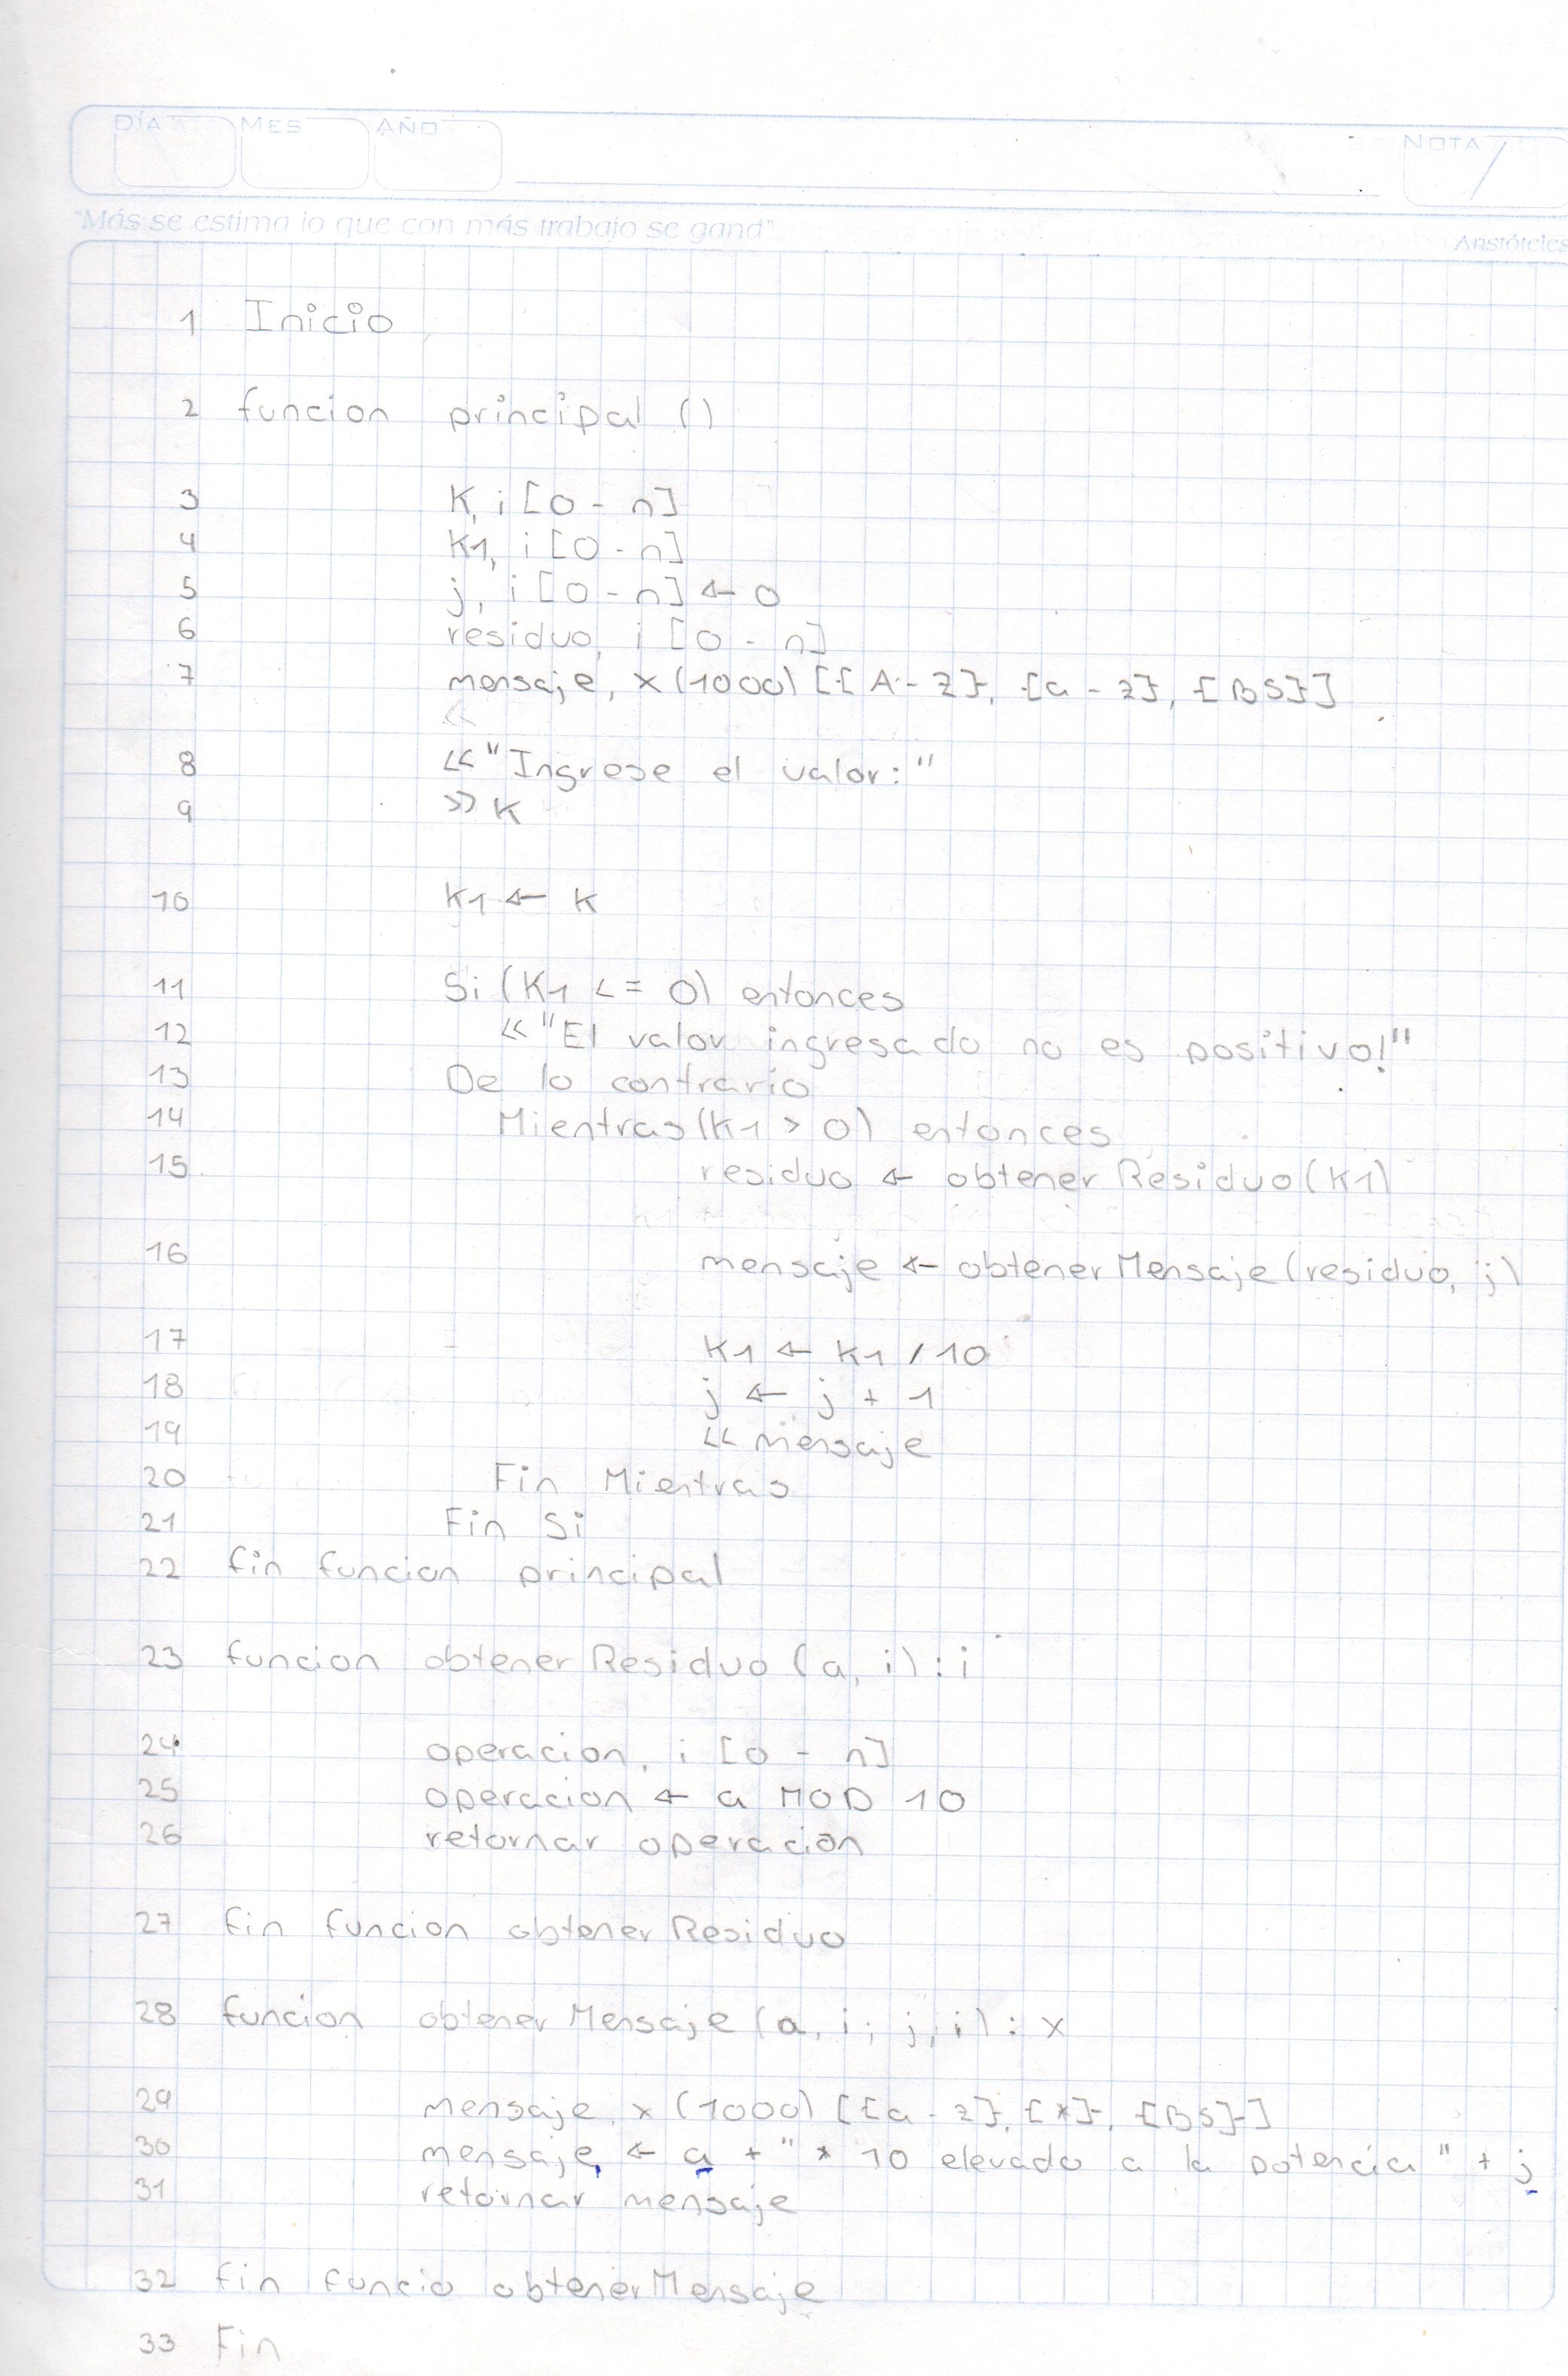 DÍA MES AÑO NOTA
"Más se estima lo que con más trabajo se gana"
Aristóteles
1 Inicio
2 funcion principal ()
3 K, i [0 - n]
4 K1, i [0 - n]
5 j, i [0 - n] ← 0
6 residuo, i [0 - n]
7 mensaje, x (1000) [{A - Z}, {a - z}, {BS}]
8 << "Ingrese el valor:"
9 >> K
10 K1 ← K
11 Si (K1 <= 0) entonces
12 << "El valor ingresado no es positivo!"
13 De lo contrario
14 Mientras (K1 > 0) entonces
15 residuo ← obtener Residuo (K1)
16 mensaje ← obtener Mensaje (residuo, j)
17 K1 ← K1 / 10
18 j ← j + 1
19 << mensaje
20 Fin Mientras
21 Fin Si
22 fin funcion principal
23 funcion obtener Residuo (a, i) : i
24 operacion, i [0 - n]
25 operacion ← a MOD 10
26 retornar operacion
27 fin funcion obtener Residuo
28 funcion obtener Mensaje (a, i; j, i) : x
29 mensaje, x (1000) [{a - z}, {*}, {BS}]
30 mensaje, ← a + " * 10 elevado a la potencia " + j
31 retornar mensaje
32 fin funcio obtener Mensaje
33 Fin